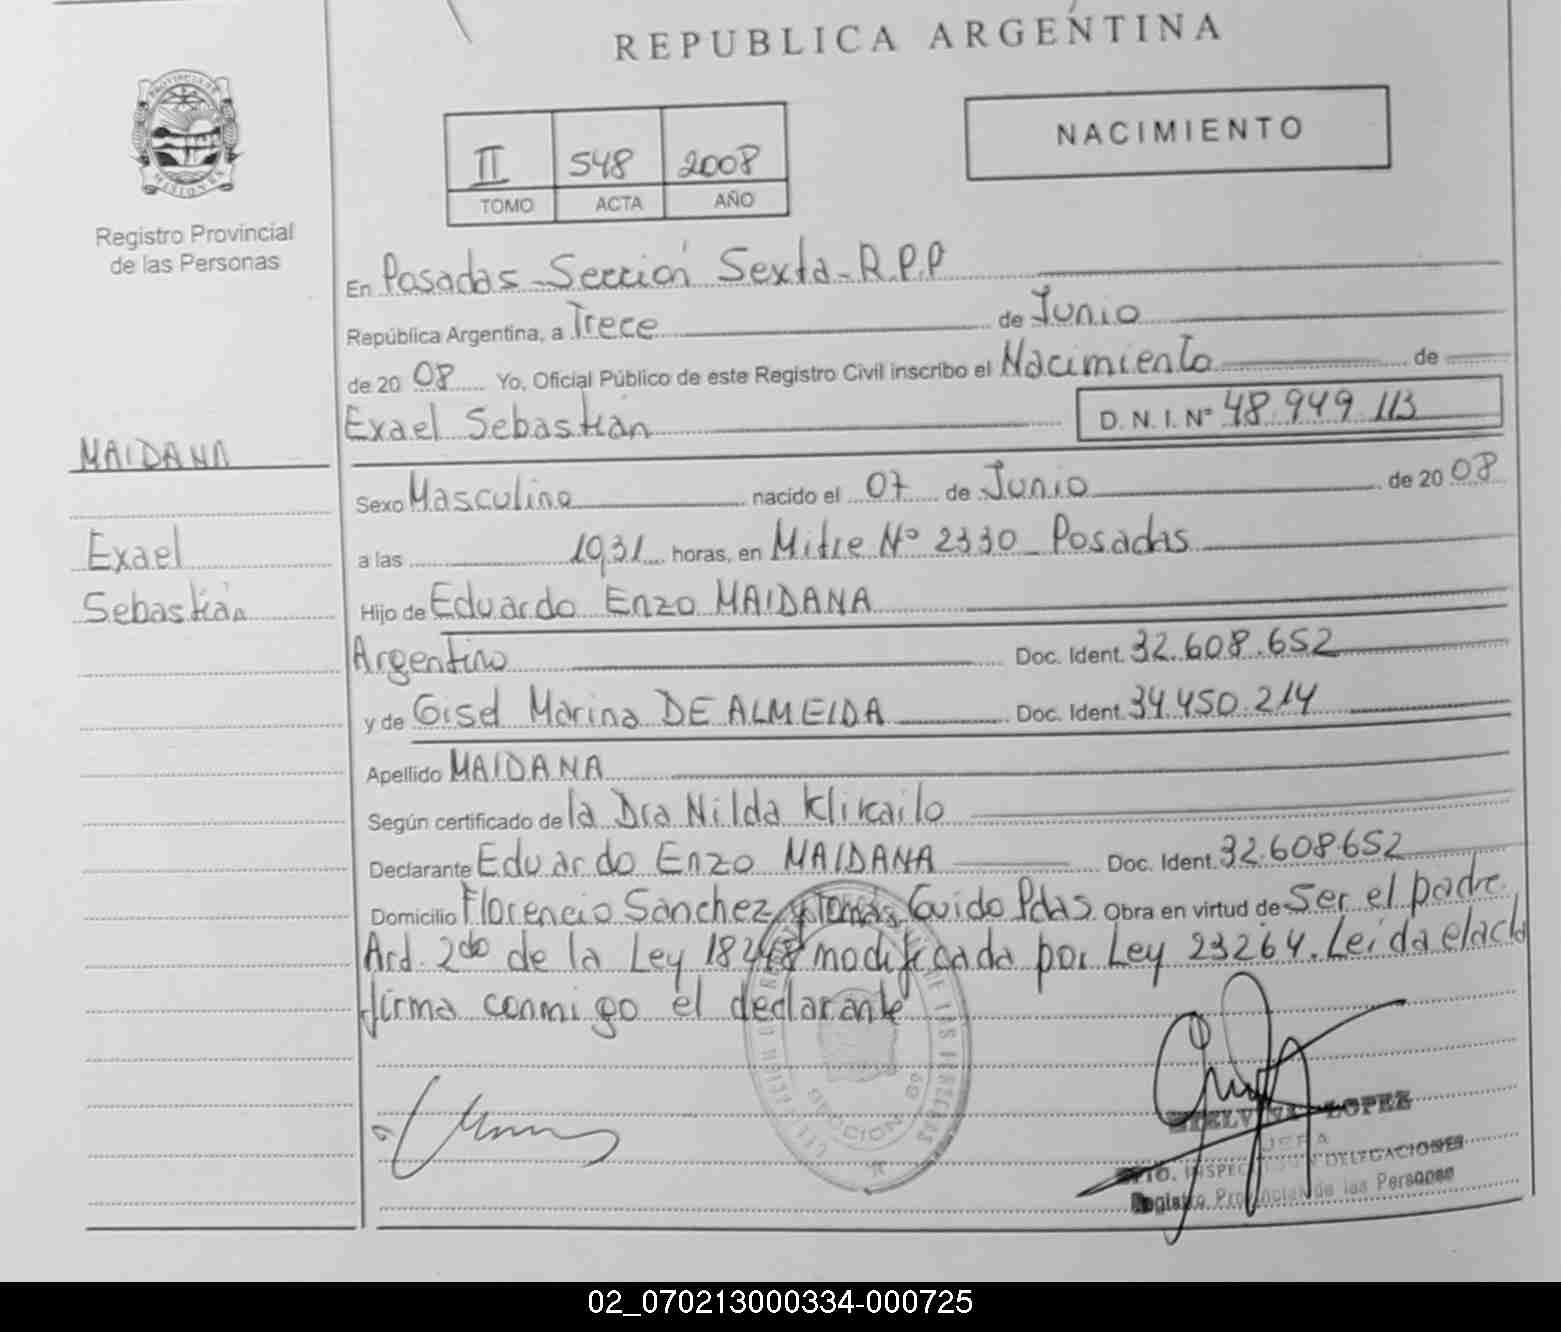 REPUBLICA ARGENTINA
PROVINCIA DE
MISIONES
Registro Provincial
de las Personas
II 548 2008
TOMO ACTA AÑO
NACIMIENTO
En Posadas - Sección Sexta - R.P.P
República Argentina, a Trece de Junio
de 20 08 Yo, Oficial Público de este Registro Civil inscribo el Nacimiento de
Exael Sebastián D.N.I. Nº 48.949.113
MAIDANA
Exael
Sebastián
Sexo Masculino nacido el 07 de Junio de 20 08
a las 1931 horas, en Mitre Nº 2330 Posadas
Hijo de Eduardo Enzo MAIDANA
Argentino Doc. Ident. 32.608.652
y de Gisel Marina DE ALMEIDA Doc. Ident. 34.450.214
Apellido MAIDANA
Según certificado de la Dra Nilda Klikailo
Declarante Eduardo Enzo MAIDANA Doc. Ident. 32.608.652
Domicilio Florencio Sanchez y Tomás Guido Pdas. Obra en virtud de Ser el padre
Ard. 2do de la Ley 18248 modificada por Ley 23264. Leida el acta
firma conmigo el declarante
DE LAS PERSONAS
SECCION
LOPEZ
JEFA
DELEGACIONES
Registro Provincial de las Personas
02_070213000334-000725